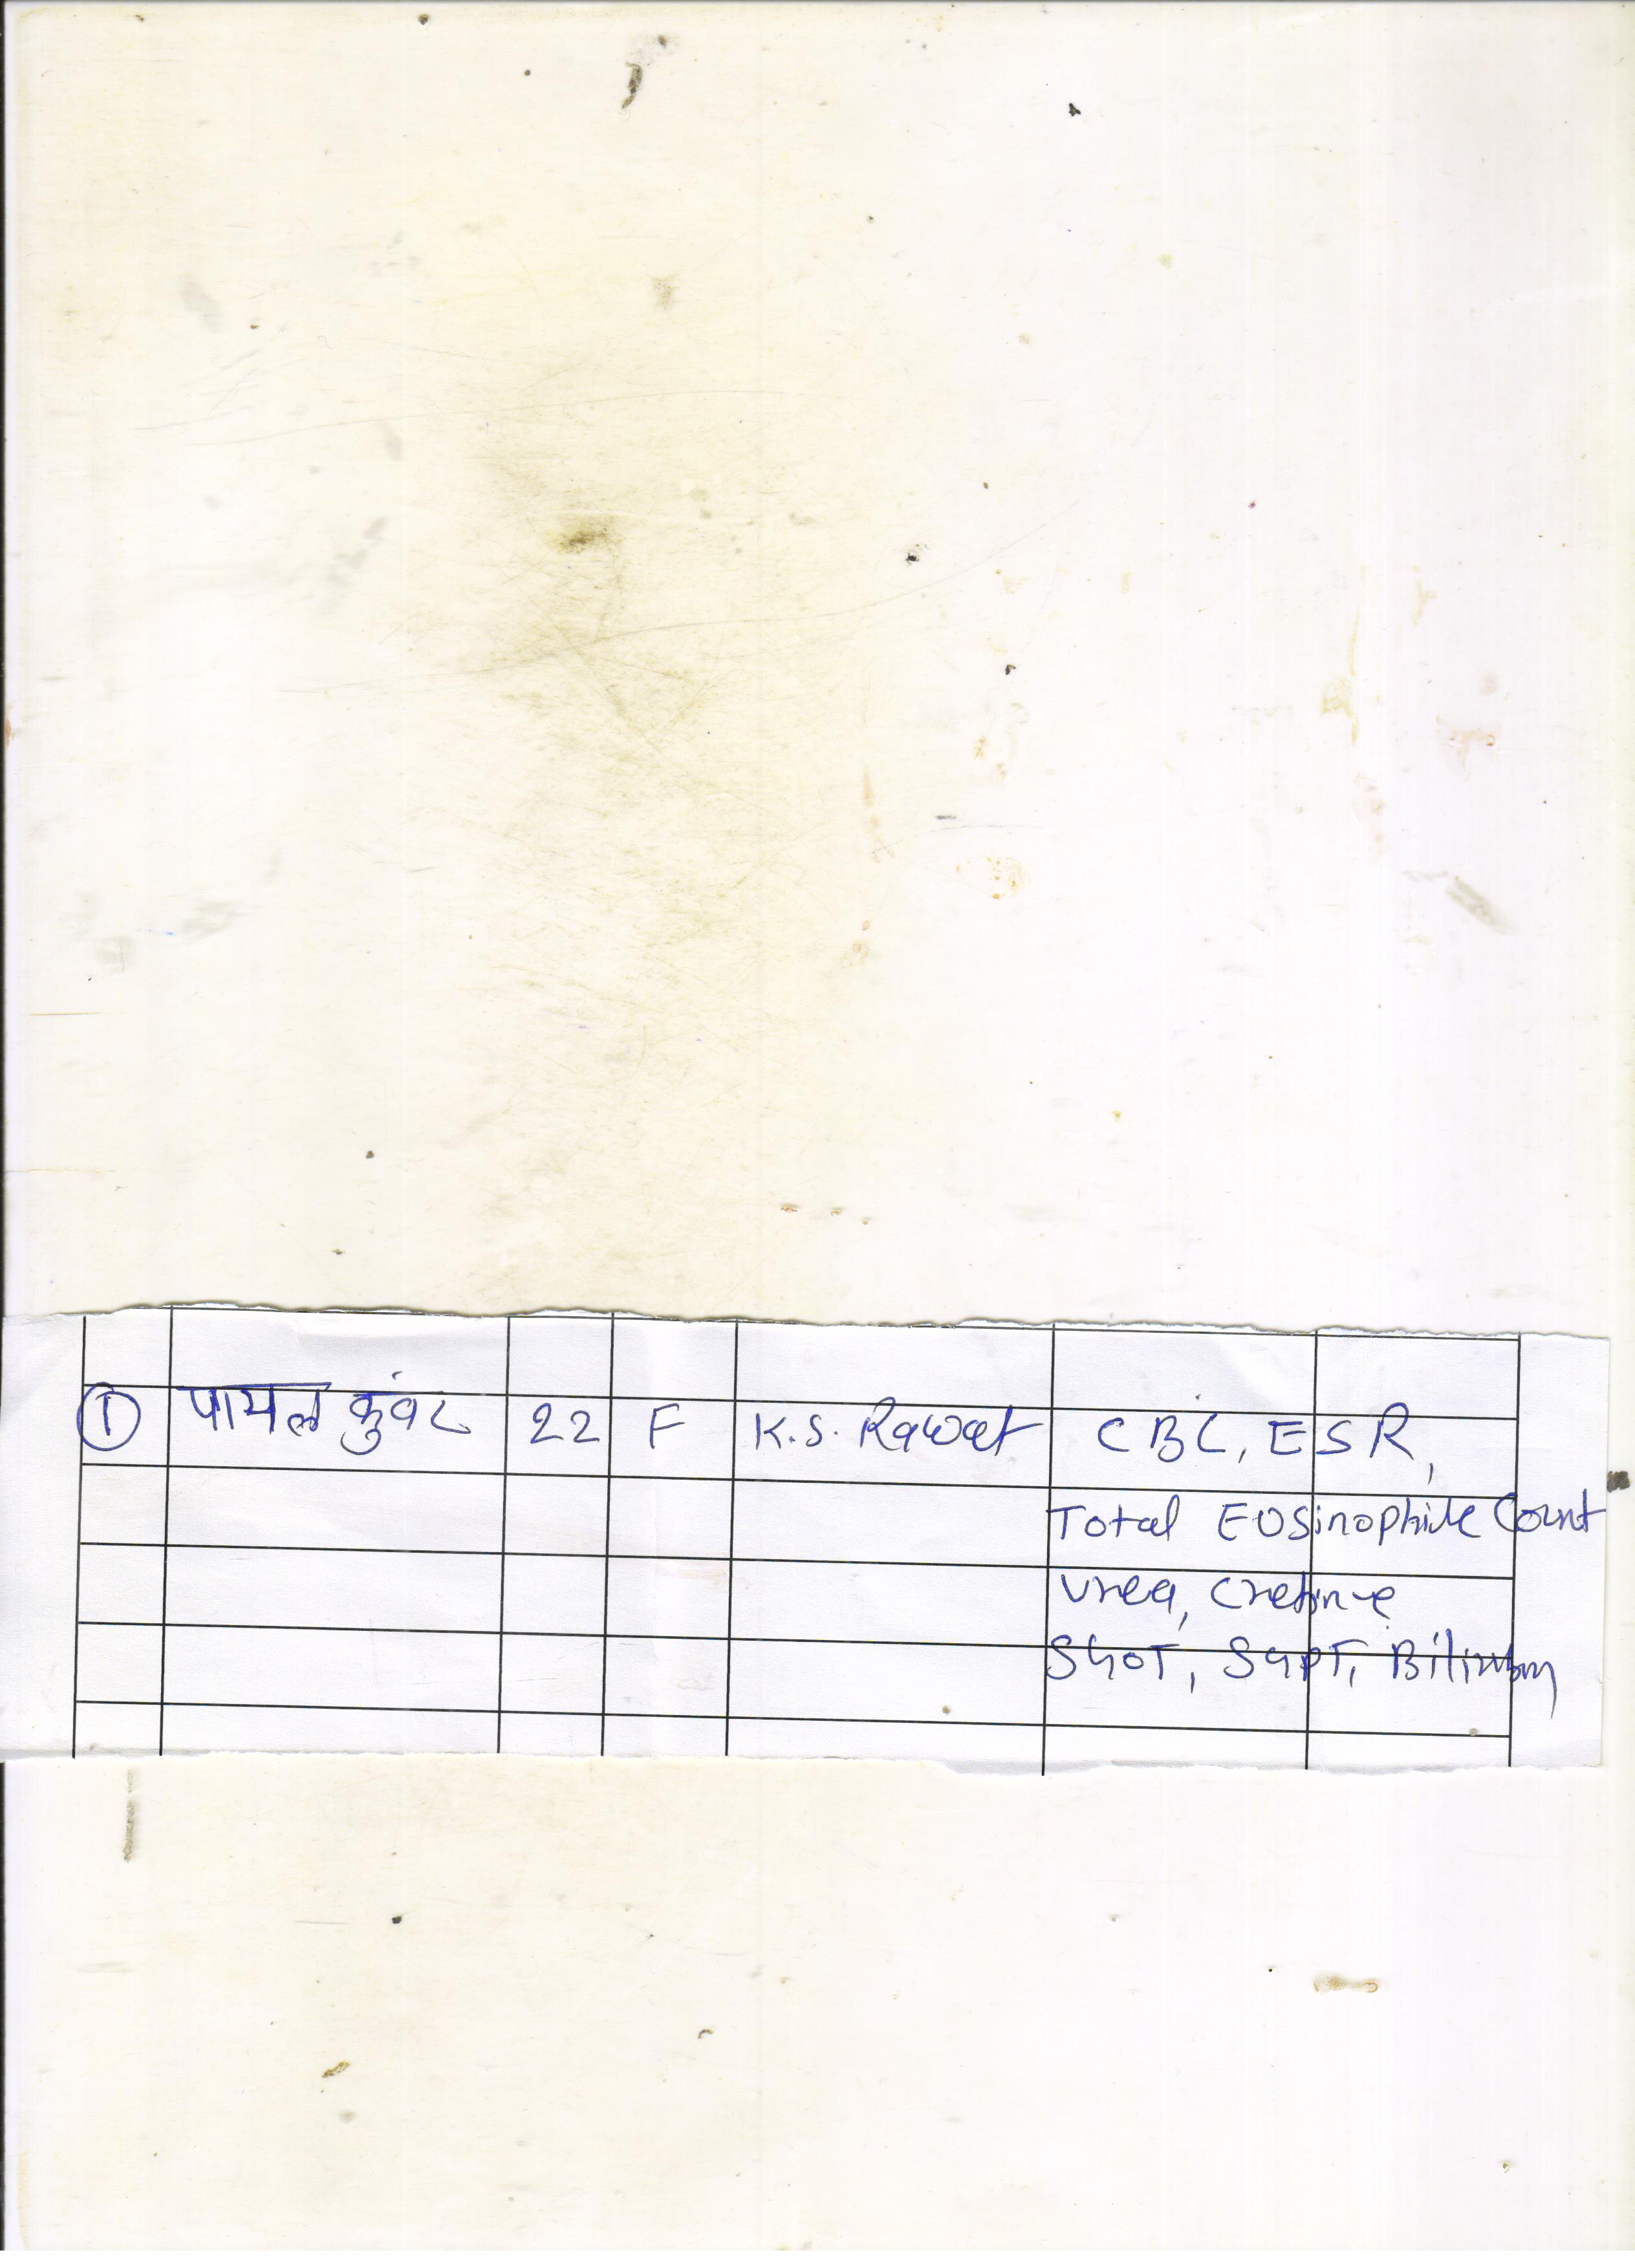 ① पायल कुंवर 22 F K.S. Rawat CBC, ESR,
Total Eosinophile Count
Urea, Cretinne
SGOT, SGPT, Bilirubin